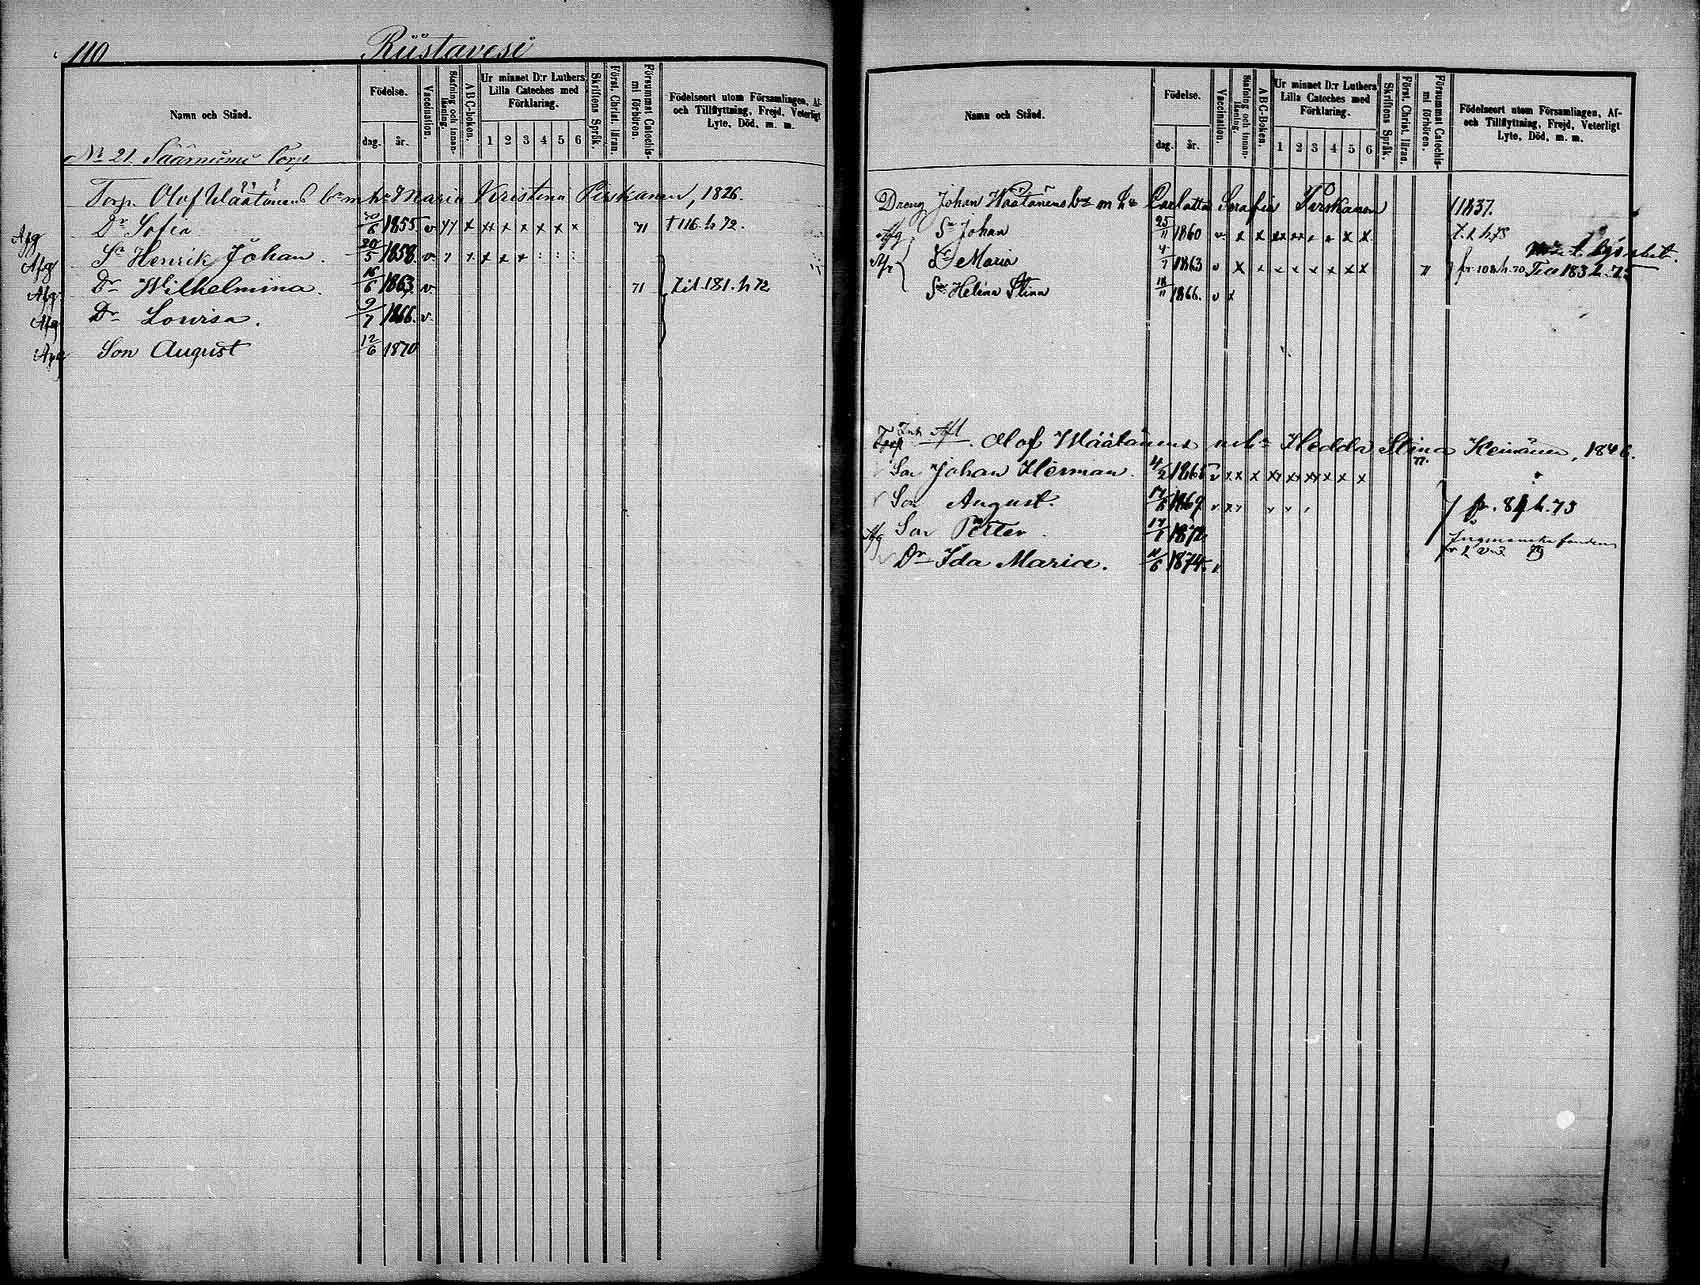 110 Riistavesi
Namn och Stånd.
Födelse.
dag. år.
Vaccination
Stafning och innan-läsning.
A B C-boken.
Ur minnet D:r Luthers Lilla Cateches med Förklaring.
1 2 3 4 5 6
Skriftens Språk.
Först. Christ. läran.
Försummat Catechis-mi förhören.
Födelseort utom Församlingen, Af-och Tillflyttning, Frejd, Veterligt Lyte, Död, m. m.
No 21. Saarniemi Torp
Torp. Olof Wäätänens b:n m h:r Maria Kristina Pirskanen, 1826.
Afg Dr Sofia 20/6 1855 v x x x x x x x 71 † 116. h 72.
Afg Sn Henrik Johan. 20/5 1858. v x x x x
Afg Dr Wilhelmina. 16/6 1863 v 71 t. i. l. 181. h 72
Afg Dr Lovisa. 9/7 1866. v
Afg Son August 12/6 1870
Namn och Stånd.
Födelse.
dag. år.
Vaccination.
Stafning och innan-läsning.
A B C-boken.
Ur minnet D:r Luthers Lilla Cateches med Förklaring.
1 2 3 4 5 6
Skriftens Språk.
Först. Christ. läran.
Försummat Catechis-mi förhören.
Födelseort utom Församlingen, Af-och Tillflyttning, Frejd, Veterligt Lyte, Död, m. m.
Dreng Johan Wäätänens b:n m h:r Carlotta Serafia Pirskanen 1837.
Afg Sn Johan 25/11 1860 v x x x x x x x x
Dr Maria 4/7 1863 v x x x x x x x x 71 fr. 108. h. 70 Till 183 h. 75
Dr Helena Stina 18/11 1866. v x
Torp Inh Afl. Olof Wäätänens m h:r Hedda Stina Heinänen, 1846.
Son Johan Herman. 4/2 1865 v x x x x x x x x x
Son August. 1869 v x x
fr. 84 h. 73
Afg Son Petter 17/1 1872.
Dr Ida Maria. 11/6 1874 v